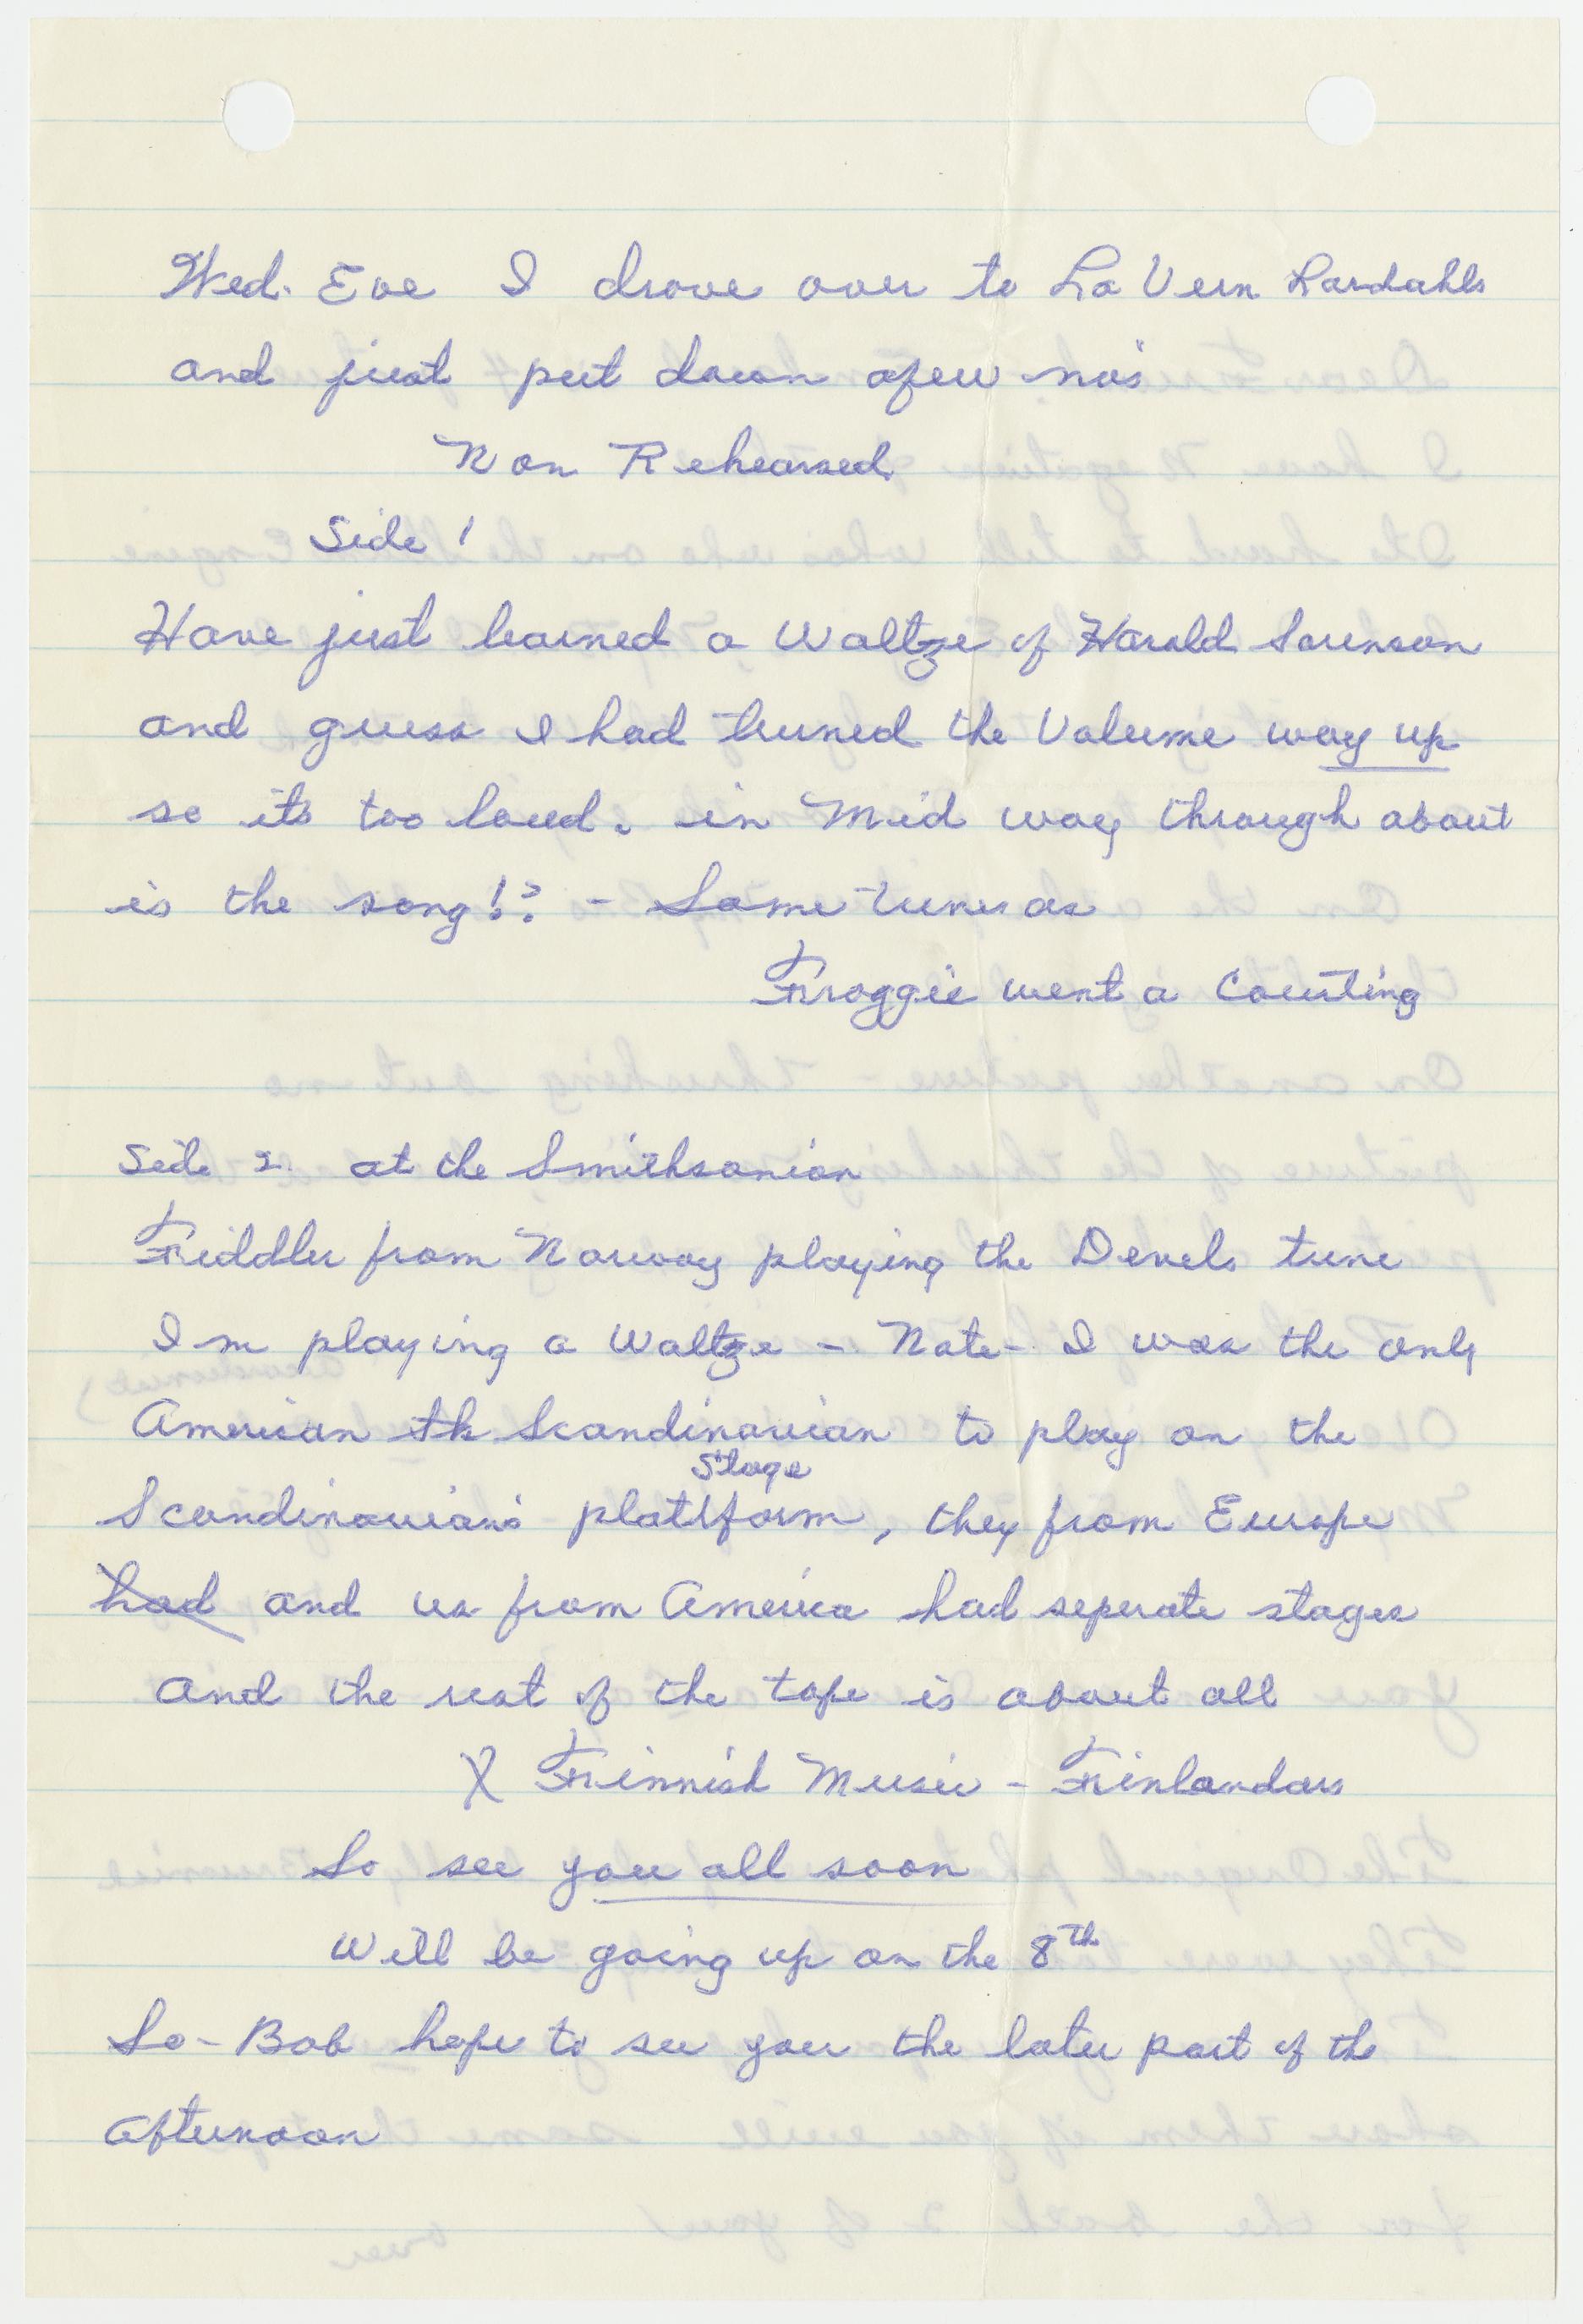 Wed. Eve I drove over to LaVern Lardahls
and just put down afew no's
Non Rehearsed
Side 1
Have just learned a Waltze of Harold Sorenson
and guess I had turned the Volume way up
so its too loud. in Mid way through about
is the song!? - Same tune as
Froggie went a Courting
Side 2. at the Smithsonian
Fiddler from Norway playing the Devels tune
Im playing a Waltze - Note - I was the only
American th Scandinavian to play on the
Stage
Scandinavian's platform, they from Europe
had and us from America had seperate stages
and the rest of the tape is about all
X Finnish Music - Finlandars
So see you all soon
Will be going up on the 8th
So - Bob hope to see you the later part of the
afternoon